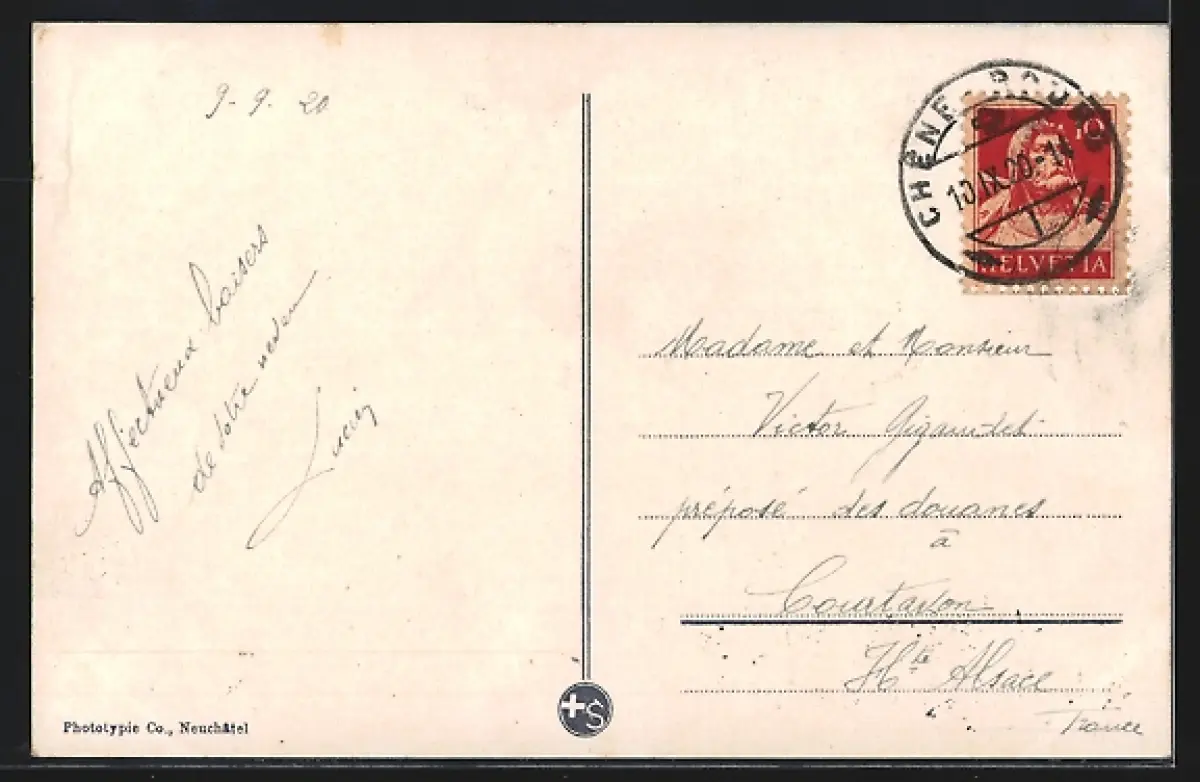 9-9.20
Affectueux baisers
de votre neveu
Lucien
CHÊNE-BOURG
10.IX.20-14
1
10
HELVETIA
Madame et Monsieur
Victor Gigandet
préposé des douanes
à
Courtavon
Hte Alsace
France
Phototypie Co., Neuchâtel
+S